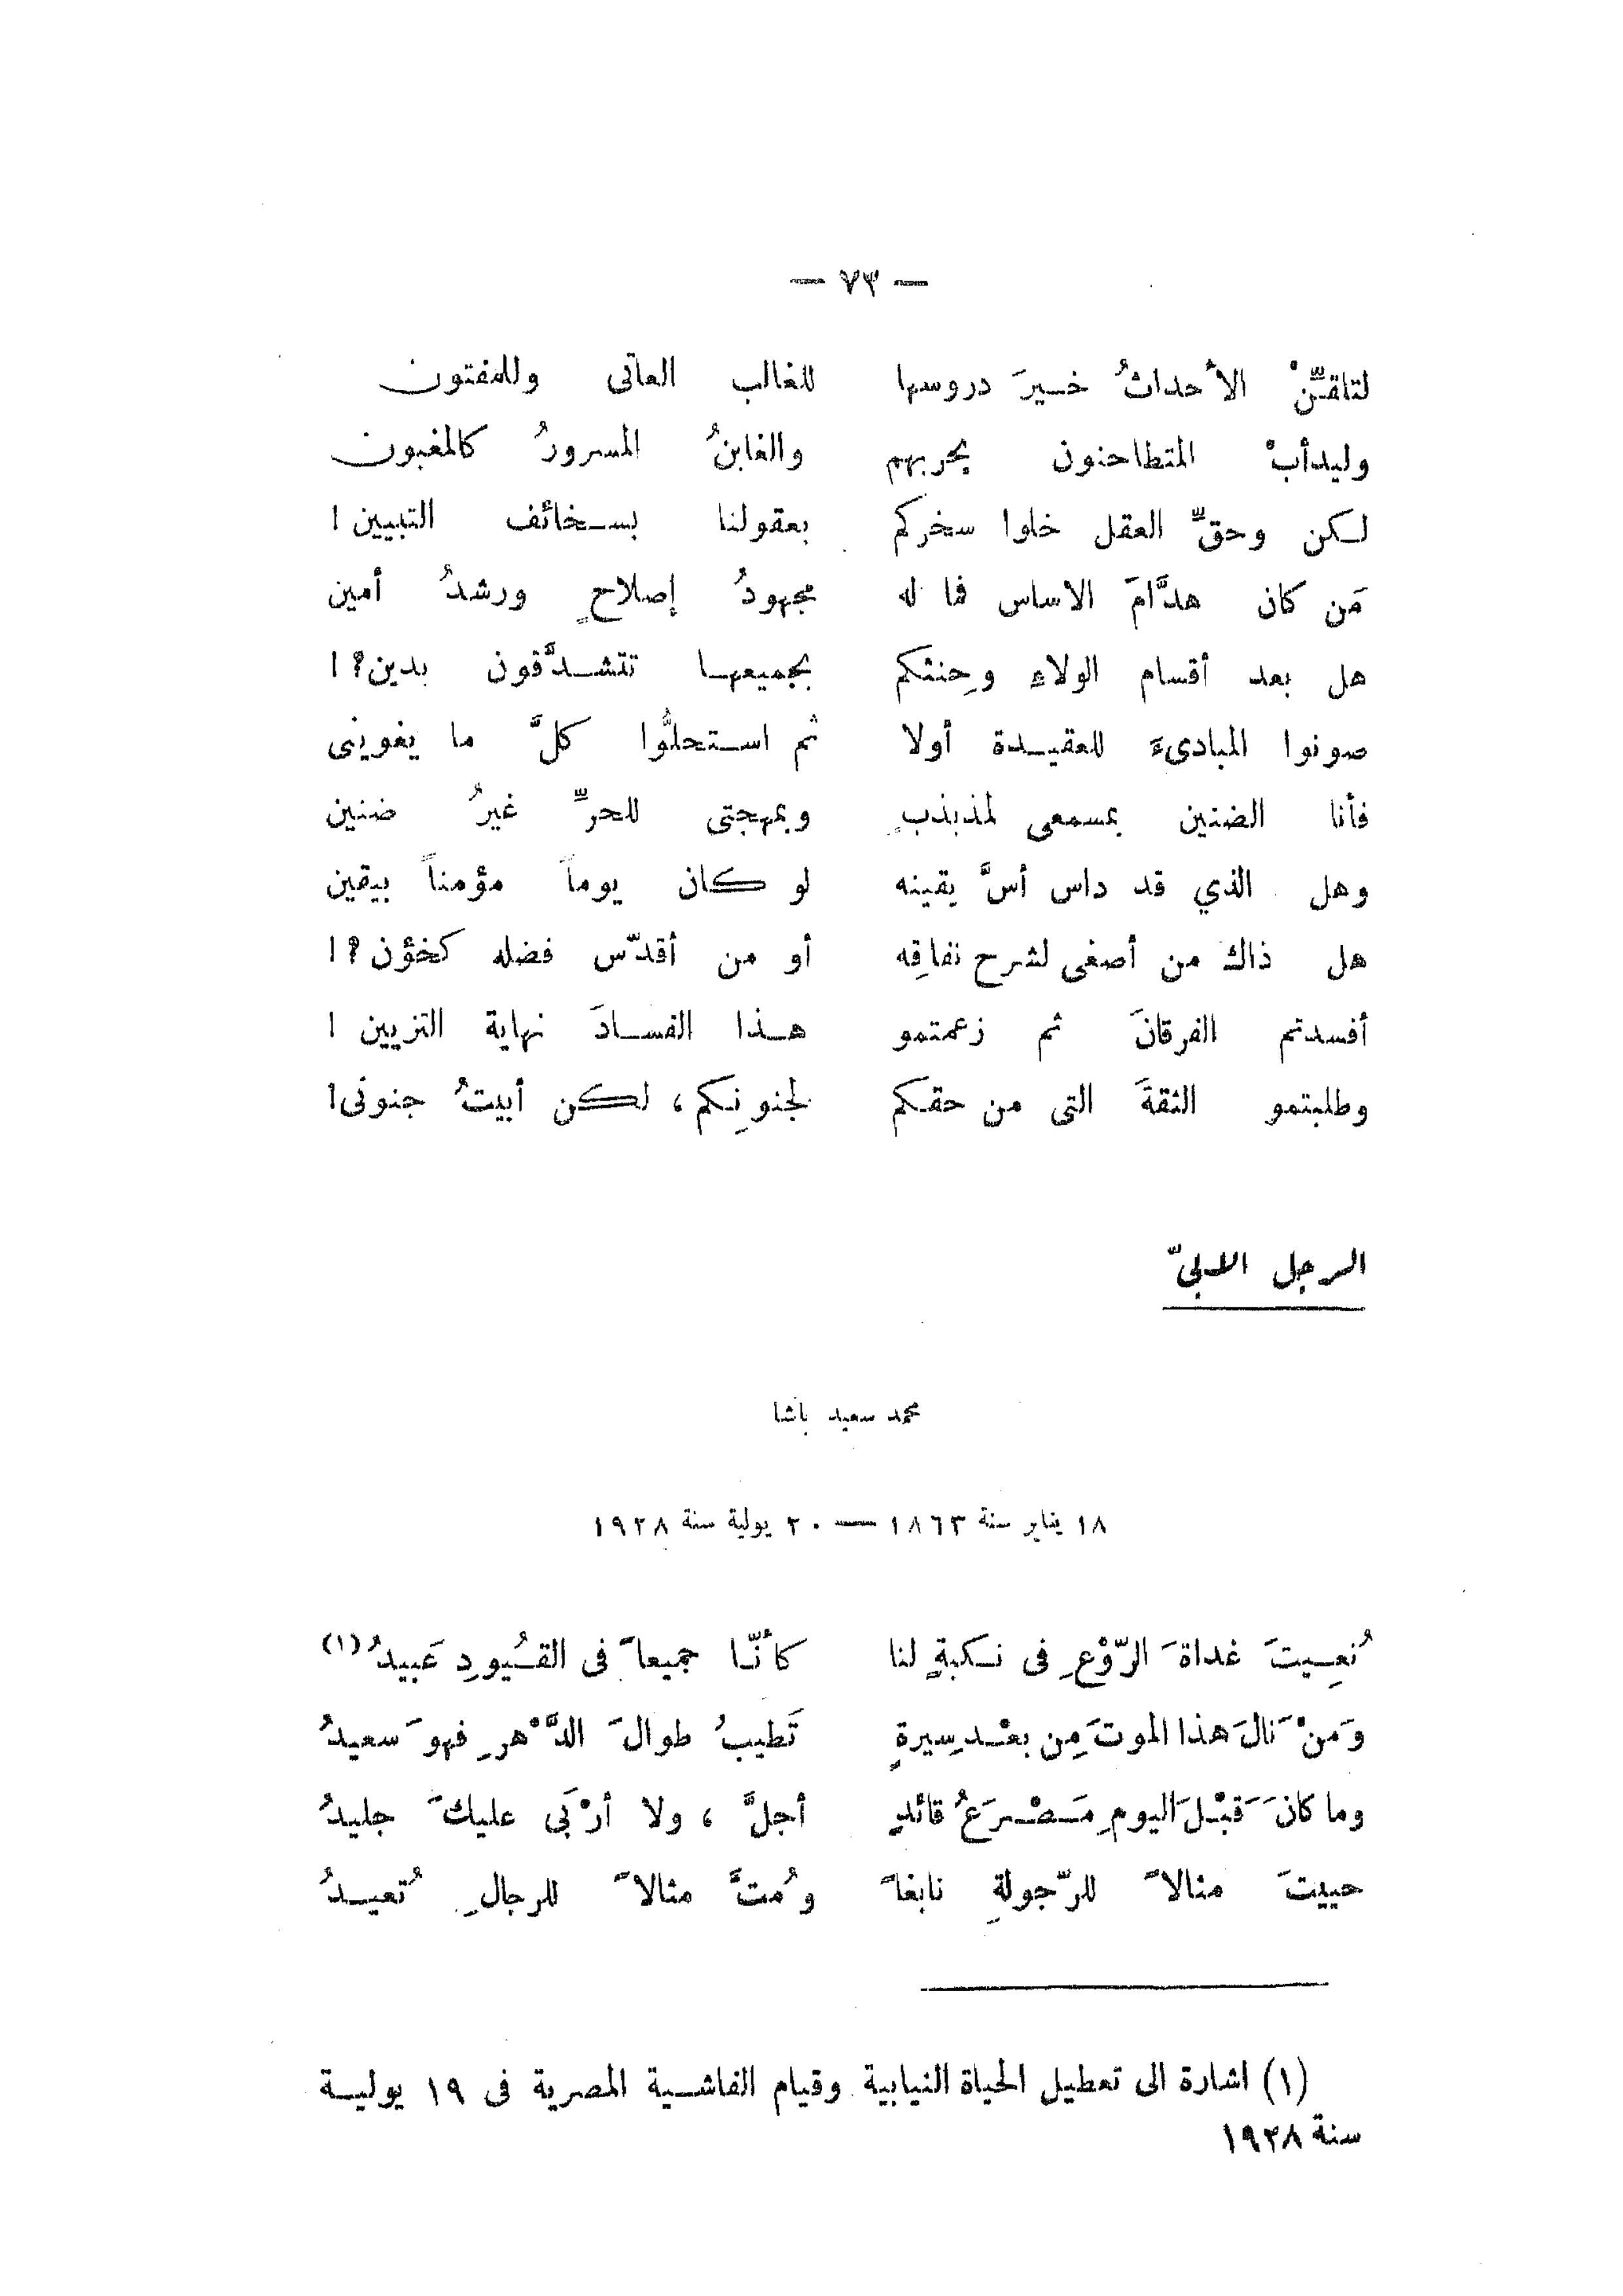 — ٧٣ —
لتلقِّنْ الأحداثُ خيرَ دروسها للغالب العاتى وللمفتون
وليدأبْ المتطاحنون بحربهم والغابنُ المسرورُ كالمغبون
لكن وحقِّ العقل خلوا سخركم بعقولنا بسخائف التبيين !
مَن كان هدَّامَ الاساس فما له مجهودُ إصلاحٍ ورشدُ أمين
هل بعد أقسام الولاءِ وحِنثكم بجميعها تتشدَّقون بدين؟!
صونوا المبادىءَ للعقيدة أولا ثم استحلُّوا كلَّ ما يغوينى
فأنا الضنين بمسمعى لمذبذبٍ وبمهجتى للحرِّ غيرُ ضنين
وهل الذي قد داس أسَّ يقينه لو كان يوماً مؤمناً بيقين
هل ذاك من أصغى لشرح نفاقِه أو من أقدّس فضله كخؤن؟!
أفسدتم الفرقانَ ثم زعمتمو هذا الفسادَ نهاية التزيين !
وطلبتمو الثقةَ التى من حقكم لجنونِكم، لكن أبيتُ جنونى!
الرجل الابىّ
محمد سعيد باشا
١٨ يناير سنة ١٨٦٣ — ٢٠ يولية سنة ١٩٢٨
نُعِيتَ غداةَ الرّوْعِ فى نكبةٍ لنا كأنّا جميعاً فى القُيودِ عَبيدُ (١)
وَمَنْ نَالَ هذا الموتَ مِن بعْد سِيرةٍ تَطيبُ طوالَ الدَّهْرِ فهوَ سعيدُ
وما كانَ قَبْلَ اليومِ مَصْرَعُ قائدٍ أجلَّ ، ولا أرْبَى عليكَ جليدُ
حييتَ مثالاً للرّجولةِ نابغاً ومُتَّ مثالاً للرجالِ تُعيدُ
(١) اشارة الى تعطيل الحياة النيابية وقيام الفاشية المصرية فى ١٩ يولية
سنة ١٩٢٨